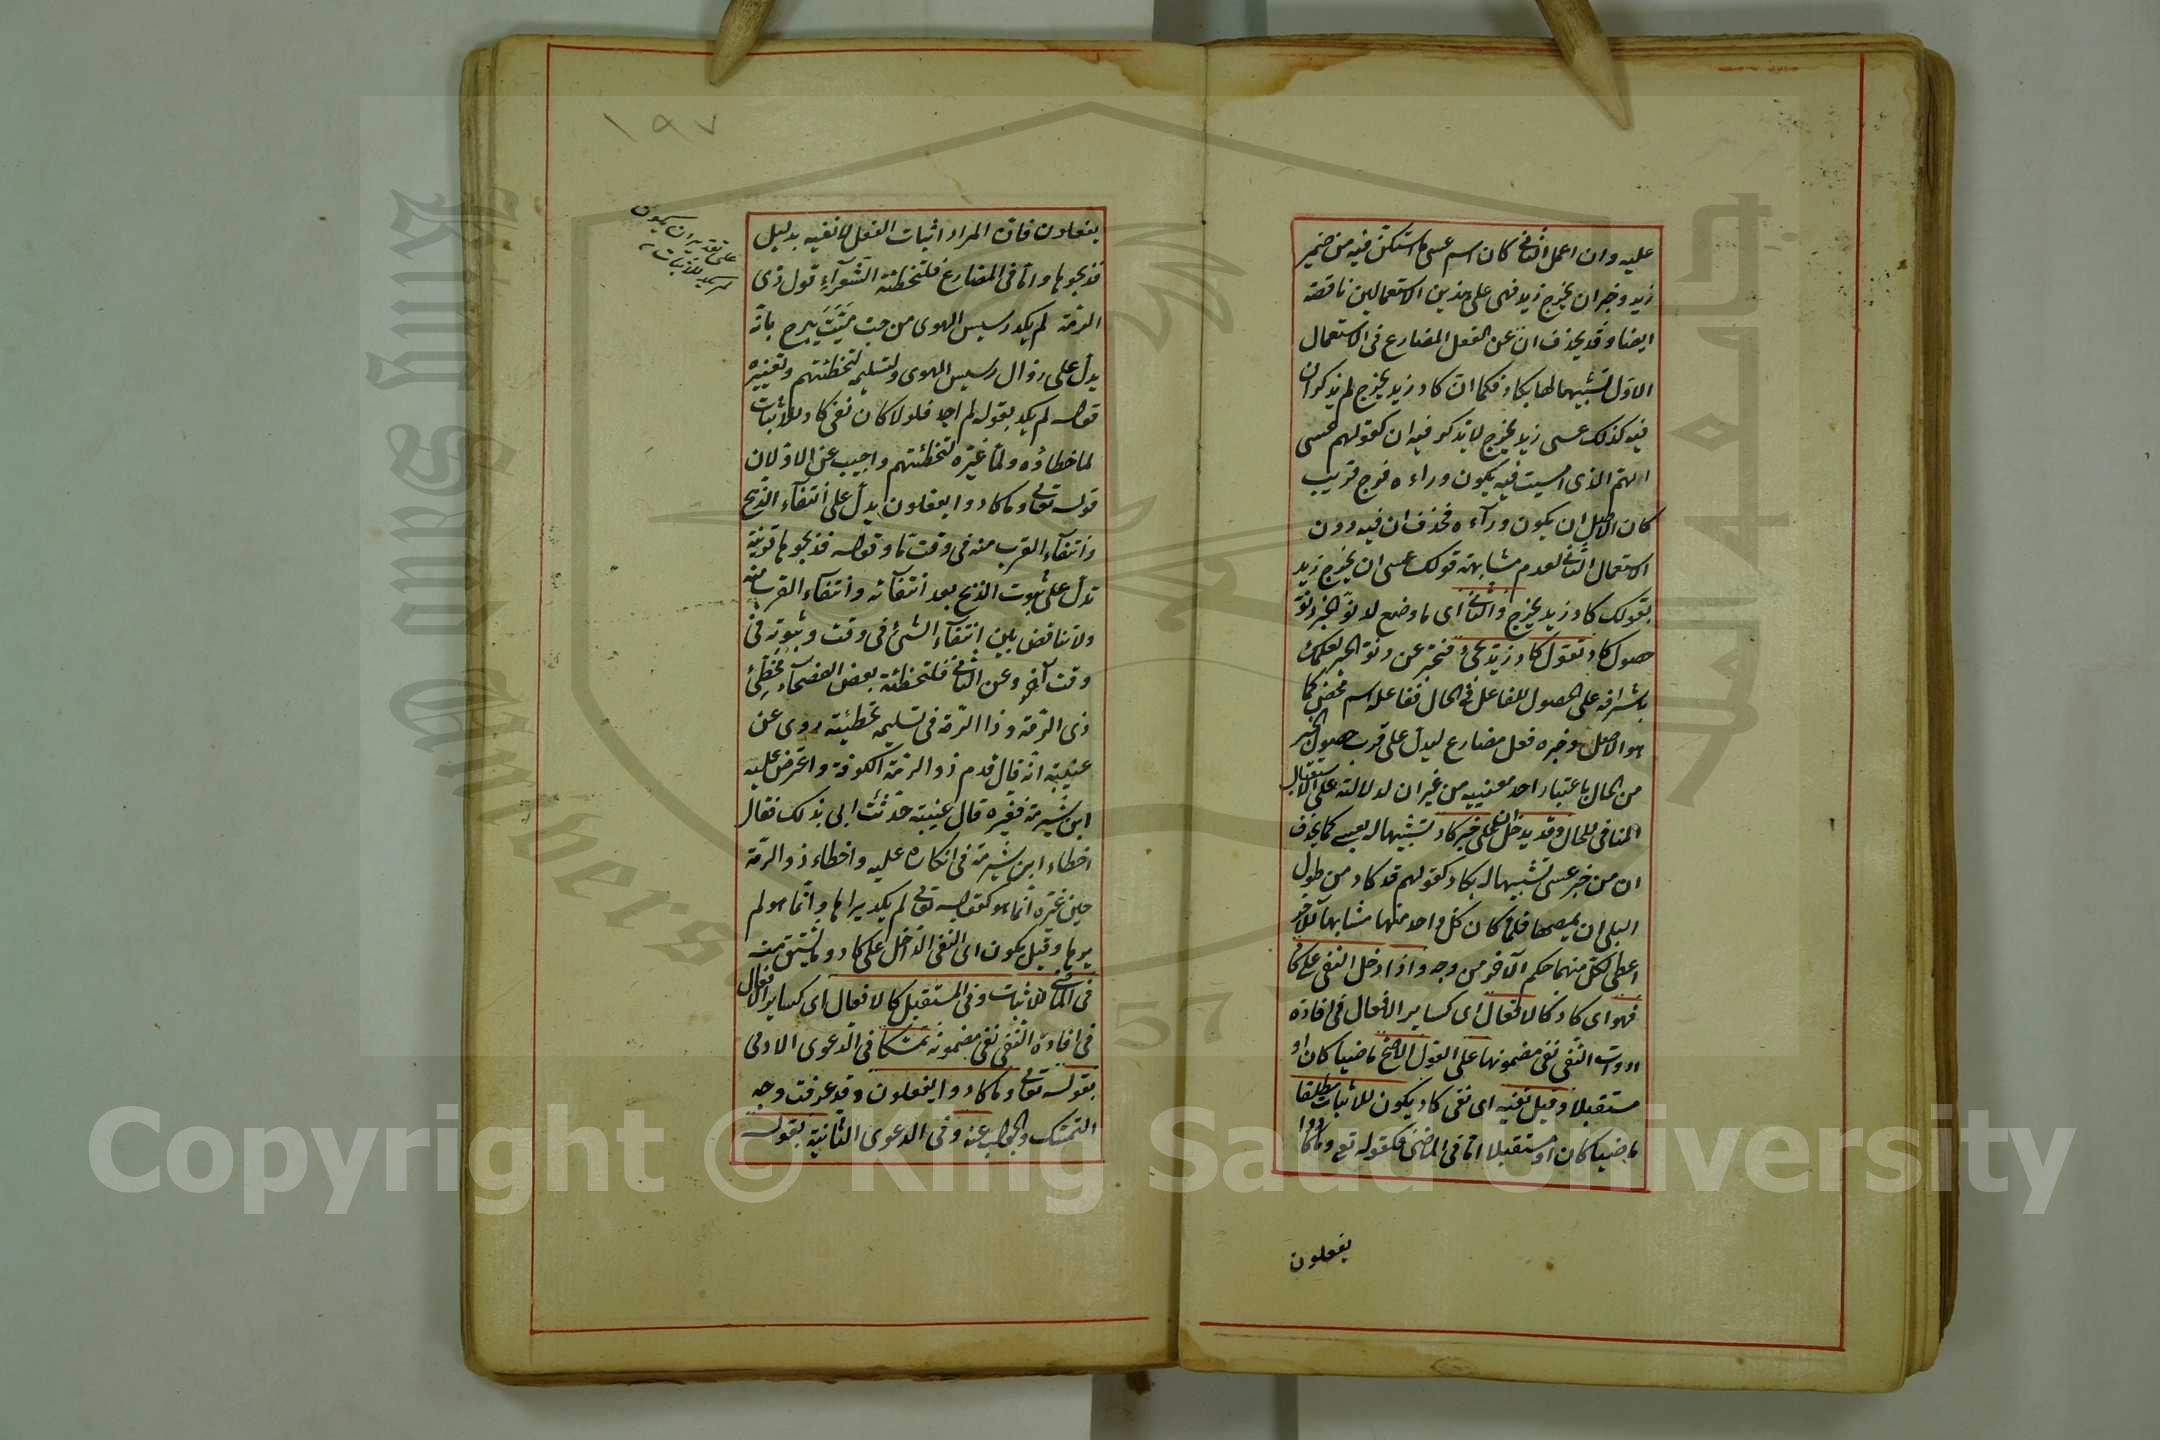 عليه وان اعمل الثاني كان اسم عسى ما استكن فيه من ضمير
زيد وخبر ان يخرج زيد فهي على هذين الاستعمالين ناقصة
ايضا وقد يحذف ان عن الفعل المضارع في الاستعمال
الاول تشبيها لها بكاد فكما ان كاد زيد يخرج لم يذكر ان
فيه كذلك عسى زيد يخرج لا يذكر فيه ان كقولهم عسى
الهم الذي امسيت فيه يكون وراءه فرج قريب
كان الاصل ان يكون ورآءه فحذف ان فيه دون
الاستعمال الثاني لعدم مشابهة قولك عسى ان يخرج زيد
بقولك كاد زيد يخرج والثاني اى ما وضع لدنو الخبر دنو
حصول كاد تقول كاد زيد يجئ فتخبر عن دنو الخبر لعلمك
باشرافه على الحصول للفاعل في الحال ففاعله اسم محض كما
هو الاصل وخبره فعل مضارع ليدل على قرب حصول الخبر
من الحال باعتبار احد معنييه من غير ان لدلالته على الاستقبال
المنافى للحال وقد يدخل ان على خبر كاد تشبيها له بعسى كما يحذف
ان من خبر عسى تشبيها له بكاد كقولهم قد كاد من طول
البلى ان يمصحا فلما كان كل واحد منهما مشابها للاخر
اعطى لكل منهما حكم الآخر من وجه واذا دخل النفى على كاد
فهو اى كاد كالافعال اى كسائر الافعال في افادة
ادوات النفى نفى مضمونها على القول الاصح ماضيا كان او
مستقبلا وقيل نفيه اى نفى كاد يكون للاثبات مطلقا
ماضيا كان او مستقبلا اما في الماضى فكقوله تع وما كادوا
يفعلون
١٩٧
يفعلون فان المراد اثبات الفعل لا نفيه بدليل
فذبحوها واما في المضارع فلتخطئة الشعرآء قول ذى
الرمة لم يكد رسيس الهوى من حب مية يبرح بانه
يدل على زوال رسيس الهوى ولتسليمه لتخطئتهم وتغييره
قوله لم يكد بقوله لم اجد فلولا كان نفى كاد للاثبات
لما خطاؤه ولما غيره لتخطئتهم واجيب عن الاول ان
قوله تعالى وما كادوا يفعلون يدل على انتفآء الذبح
وانتفآء القرب منه في وقت ما وقوله فذبحوها قرينة
تدل على ثبوت الذبح بعد انتفآئه وانتفاء القرب منه
ولا تناقض بين انتفآء الشئ في وقت وثبوته في
وقت آخر وعن الثاني فلتخطئة بعض الفصحآء مخطئ
ذى الرمة وذا الرمة في تسليمه تخطيئته روى عن
عنبسة انه قال قدم ذو الرمة الكوفة واعترض عليه
ابن شبرمة فغيره قال عنبسة حدثت ابى بذلك فقال
اخطاء ابن شبرمة في انكاره عليه واخطاء ذو الرمة
حين غيره انما هو كقوله تعالى لم يكد يراها وانما هو لم
يرها وقيل يكون اى النفى الداخل على كاد وما يشتق منه
في الماضى للاثبات وفي المستقبل كالافعال اى كسائر الافعال
في افادة النفى نفى مضمونه تمسكا في الدعوى الاولى
بقوله تعالى وما كادوا يفعلون وقد عرفت وجه
التمسك والجواب عنه وفي الدعوى الثانية بقوله
على تقدير ان يكون
لم يكد للاثبات
King Saud University
1957
Copyright © King Saud University